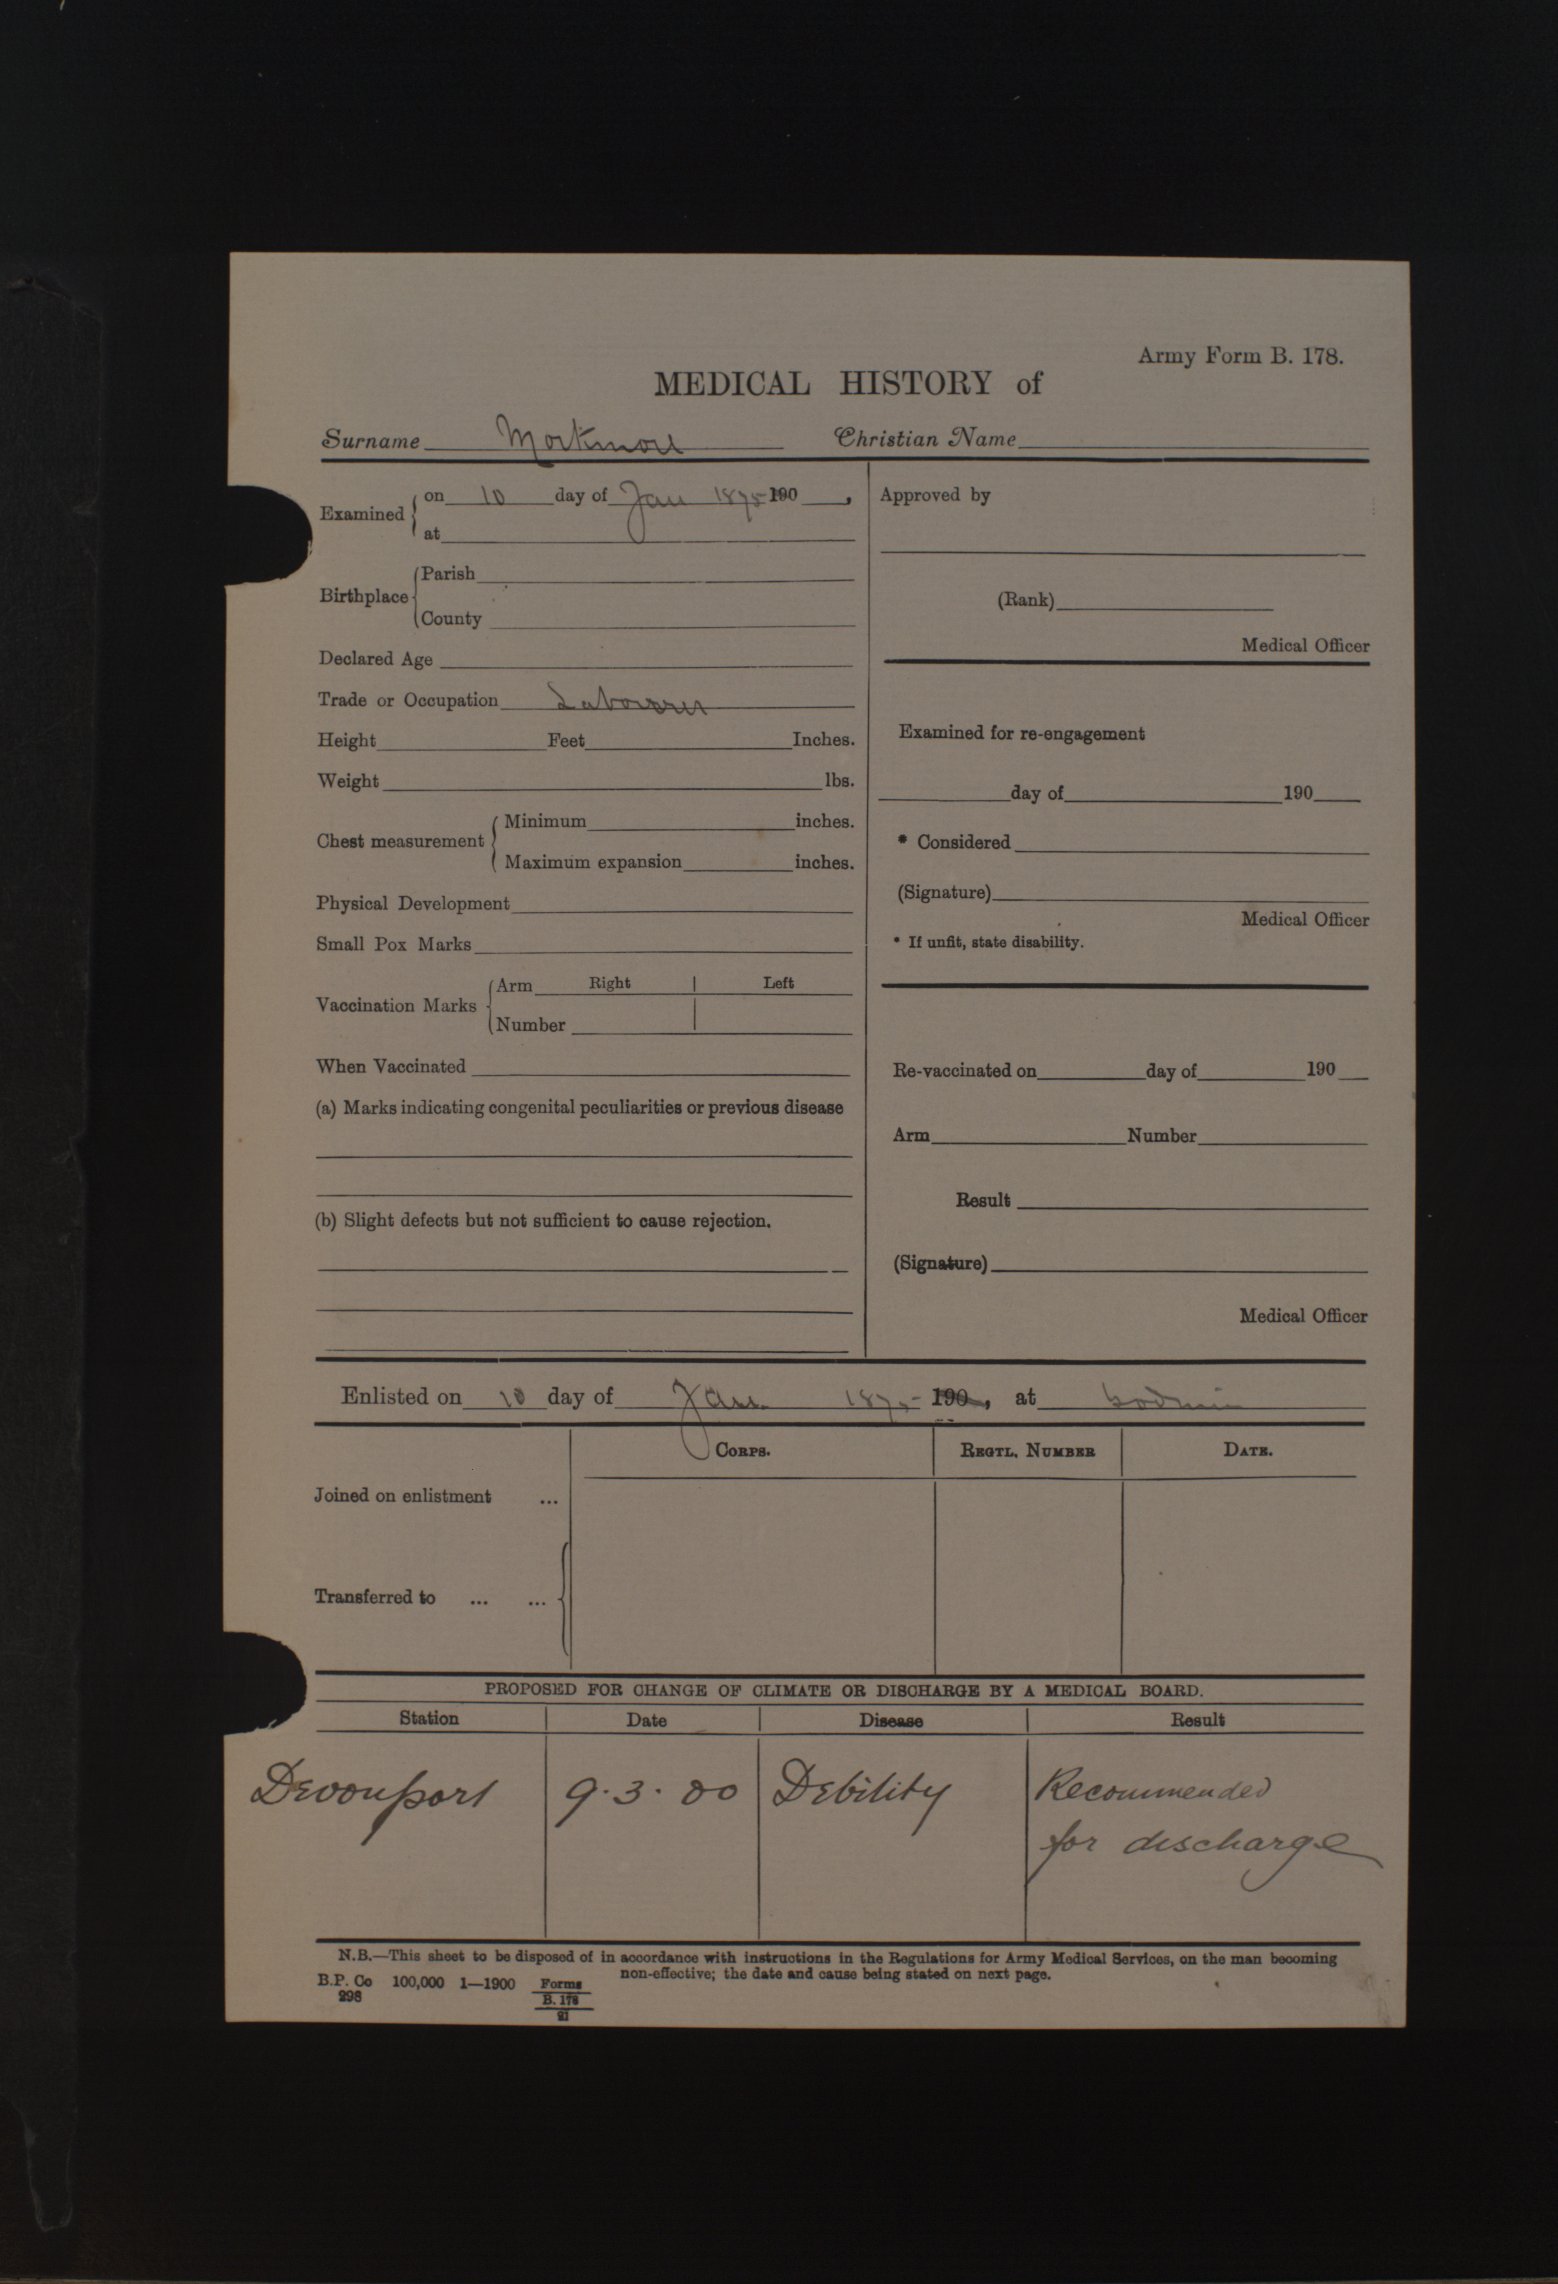 Army Form B. 178.
MEDICAL HISTORY of
Surname Mortimore Christian Name
Examined on 10 day of Jan 1875 190 ,
at
Birthplace Parish
County
Declared Age
Trade or Occupation Labourer
Height Feet Inches.
Weight lbs.
Chest measurement Minimum inches.
Maximum expansion inches.
Physical Development
Small Pox Marks
Vaccination Marks Arm Right Left
Number
When Vaccinated
(a) Marks indicating congenital peculiarities or previous disease
(b) Slight defects but not sufficient to cause rejection.
Approved by
(Rank)
Medical Officer
Examined for re-engagement
day of 190
* Considered
(Signature)
Medical Officer
* If unfit, state disability.
Re-vaccinated on day of 190
Arm Number
Result
(Signature)
Medical Officer
Enlisted on 10 day of Jan 1875 190 , at Bodmin
CORPS. REGTL. NUMBER DATE.
Joined on enlistment ...
Transferred to ... ...
PROPOSED FOR CHANGE OF CLIMATE OR DISCHARGE BY A MEDICAL BOARD.
Station Date Disease Result
Devonport 9.3.00 Debility Recommended
for discharge
N.B.—This sheet to be disposed of in accordance with instructions in the Regulations for Army Medical Services, on the man becoming
non-effective; the date and cause being stated on next page.
B.P. Co 100,000 1—1900 Forms
298 B. 178
21